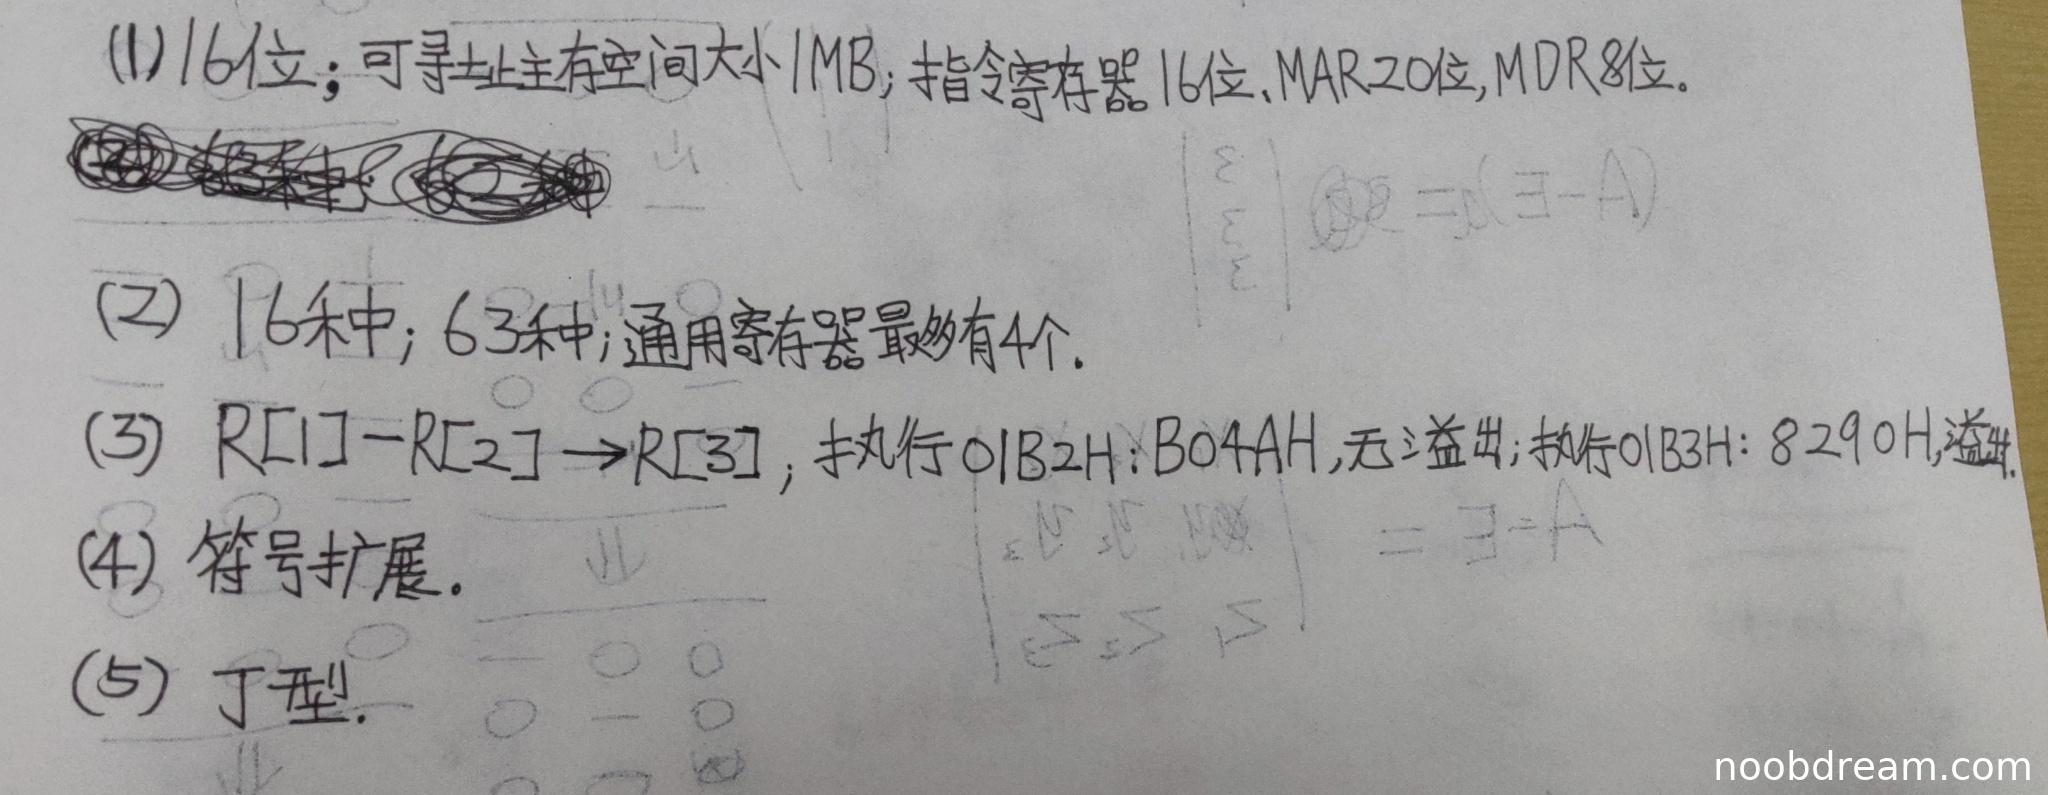 (1) 16位；可寻址主存空间大小1MB；指令寄存器16位、MAR20位，MDR8位。
(2) 16种；63种；通用寄存器最多有4个.
(3) R[1]-R[2]→R[3]；执行01B2H：B04AH，无溢出；执行01B3H：8290H，溢出.
(4) 符号扩展.
(5) J型.
noobdream.com